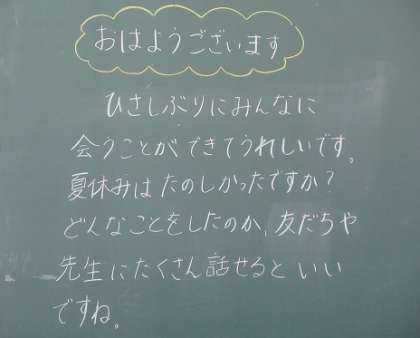 おはようございます
ひさしぶりにみんなに
会うことができてうれしいです。
夏休みはたのしかったですか?
どんなことをしたのか、友だちや
先生にたくさん話せるといい
ですね。